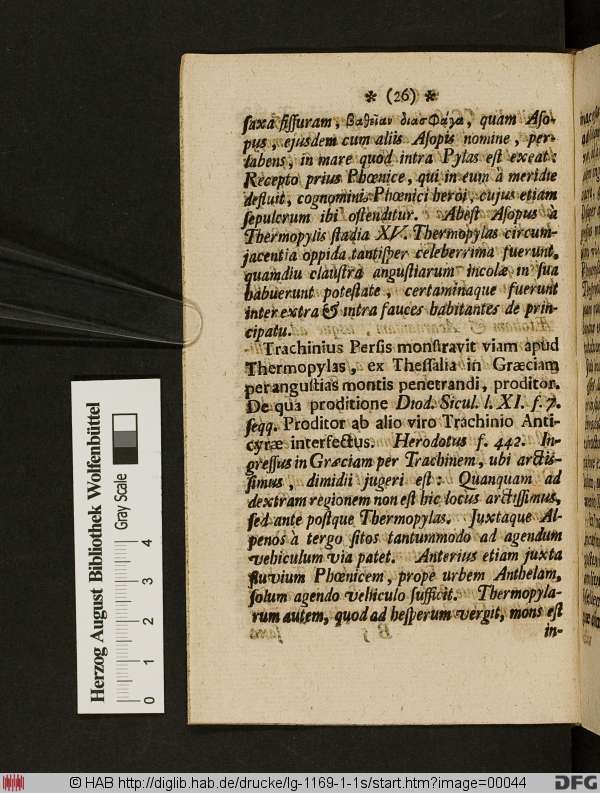 * (26) *
ſaxa fiſſuram, βαθεῖαν διασφάγα, quam Aſo-
pus, ejusdem cum aliis Aſopis nomine, per-
labens, in mare quod intra Pylas eſt exeat:
Recepto prius Phœnice, qui in eum à meridie
defluit, cognominis Phœnici heroi, cujus etiam
ſepulcrum ibi oſtenditur. Abeſt Aſopus à
Thermopylis ſtadia XV. Thermopylas circum-
jacentia oppida tantiſper celeberrima fuerunt,
quamdiu clauſtra anguſtiarum incolæ in ſua
habuerunt poteſtate, certaminaque fuerunt
inter extra & intra fauces habitantes de prin-
cipatu.
Trachinius Perſis monſtravit viam apud
Thermopylas, ex Theſſalia in Græciam
per anguſtias montis penetrandi, proditor.
De qua proditione Diod. Sicul. l. XI. f. 7.
ſeqq. Proditor ab alio viro Trachinio Anti-
cyræ interfectus. Herodotus f. 442. In-
greſſus in Græciam per Trachinem, ubi arctiſ-
ſimus, dimidii jugeri eſt: Quanquam ad
dextram regionem non eſt hic locus arctiſſimus,
ſed ante poſtque Thermopylas. Juxtaque Al-
penos à tergo ſitos tantummodo ad agendum
vehiculum via patet. Anterius etiam juxta
fluvium Phœnicem, prope urbem Anthelam,
ſolum agendo vehiculo ſufficit. Thermopyla-
rum autem, quod ad heſperum vergit, mons eſt
in-
Herzog August Bibliothek Wolfenbüttel
Gray Scale
0 1 2 3 4
© HAB http://diglib.hab.de/drucke/lg-1169-1-1s/start.htm?image=00044
DFG